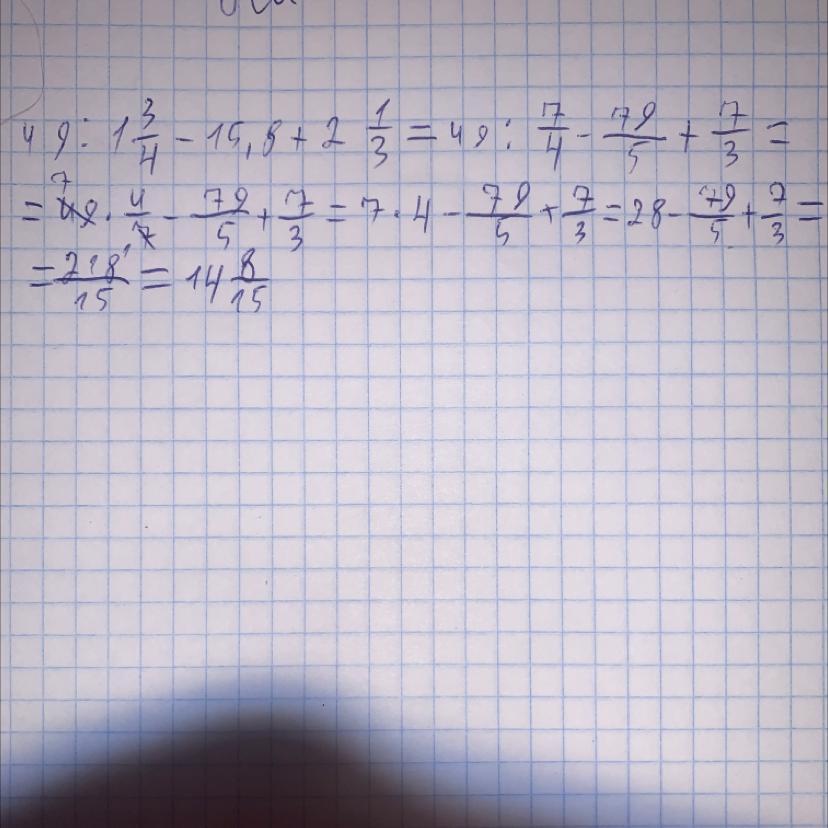 49 : 1 3/4 - 15,8 + 2 1/3 = 49 : 7/4 - 79/5 + 7/3 =
= 49 7 · 4/7 - 79/5 + 7/3 = 7 · 4 - 79/5 + 7/3 = 28 - 79/5 + 7/3 =
= 218/15 = 14 8/15